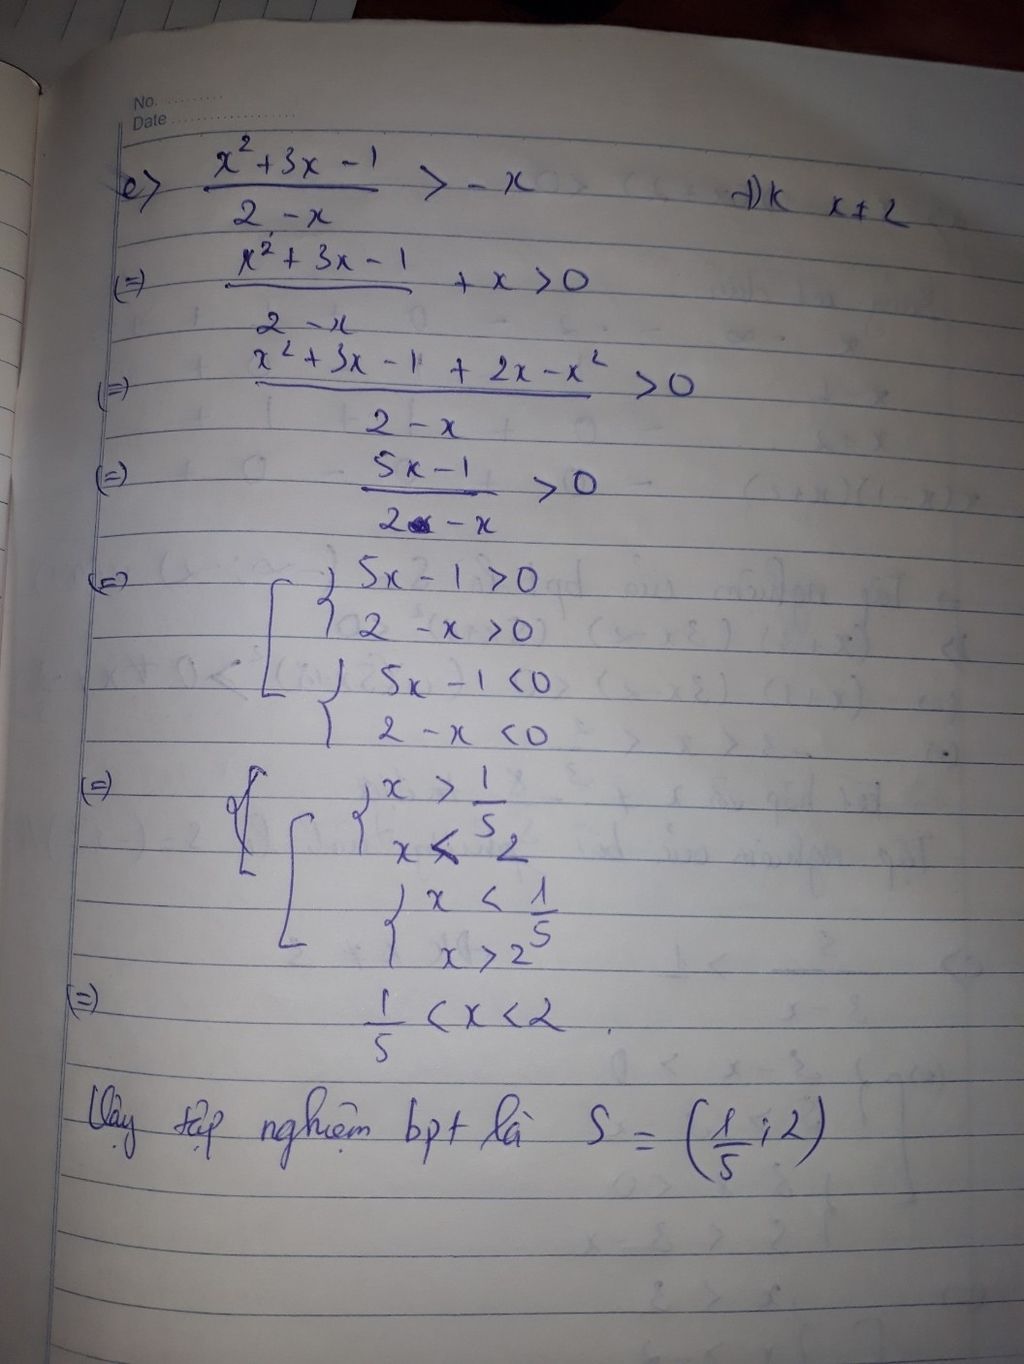 No. ..........
Date ....................
e) (x² + 3x - 1)/(2 - x) > - x ĐK x ≠ 2
(=) (x² + 3x - 1)/(2 - x) + x > 0
(=) (x² + 3x - 1 + 2x - x²)/(2 - x) > 0
(=) (5x - 1)/(2 - x) > 0
(=) [ { 5x - 1 > 0
2 - x > 0
{ 5x - 1 < 0
2 - x < 0
(=) [ { x > 1/5
x < 2
{ x < 1/5
x > 2
(=) 1/5 < x < 2 .
Vậy tập nghiệm bpt là S = (1/5 ; 2)